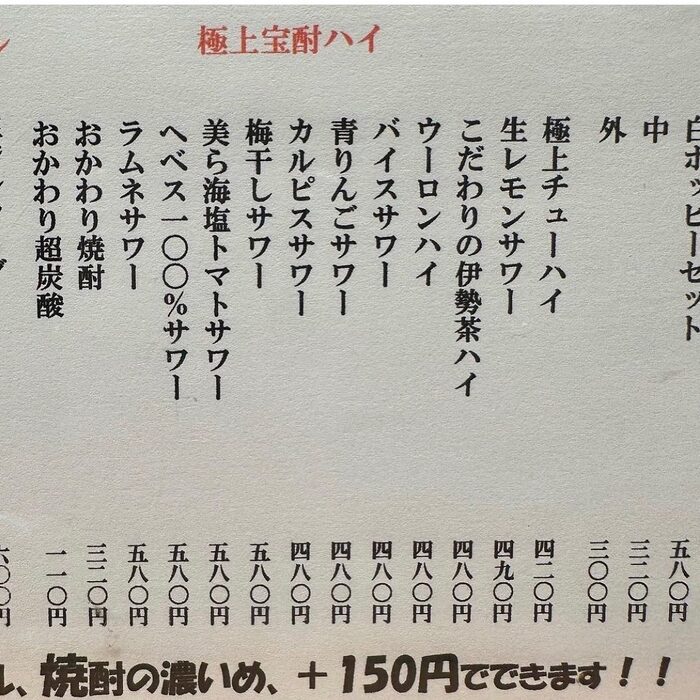 極上宝酎ハイ
白ホッピーセット 五八〇円
中 三二〇円
外 三〇〇円
極上チューハイ 四二〇円
生レモンサワー 四九〇円
こだわりの伊勢茶ハイ 四八〇円
ウーロンハイ 四八〇円
バイスサワー 四八〇円
青りんごサワー 四八〇円
カルピスサワー 四八〇円
梅干しサワー 五八〇円
美ら海塩トマトサワー 五八〇円
ヘベス一〇〇％サワー 五八〇円
ラムネサワー 五八〇円
おかわり焼酎 三二〇円
おかわり超炭酸 一一〇円
六〇〇円
ル、焼酎の濃いめ、＋150円でできます！！